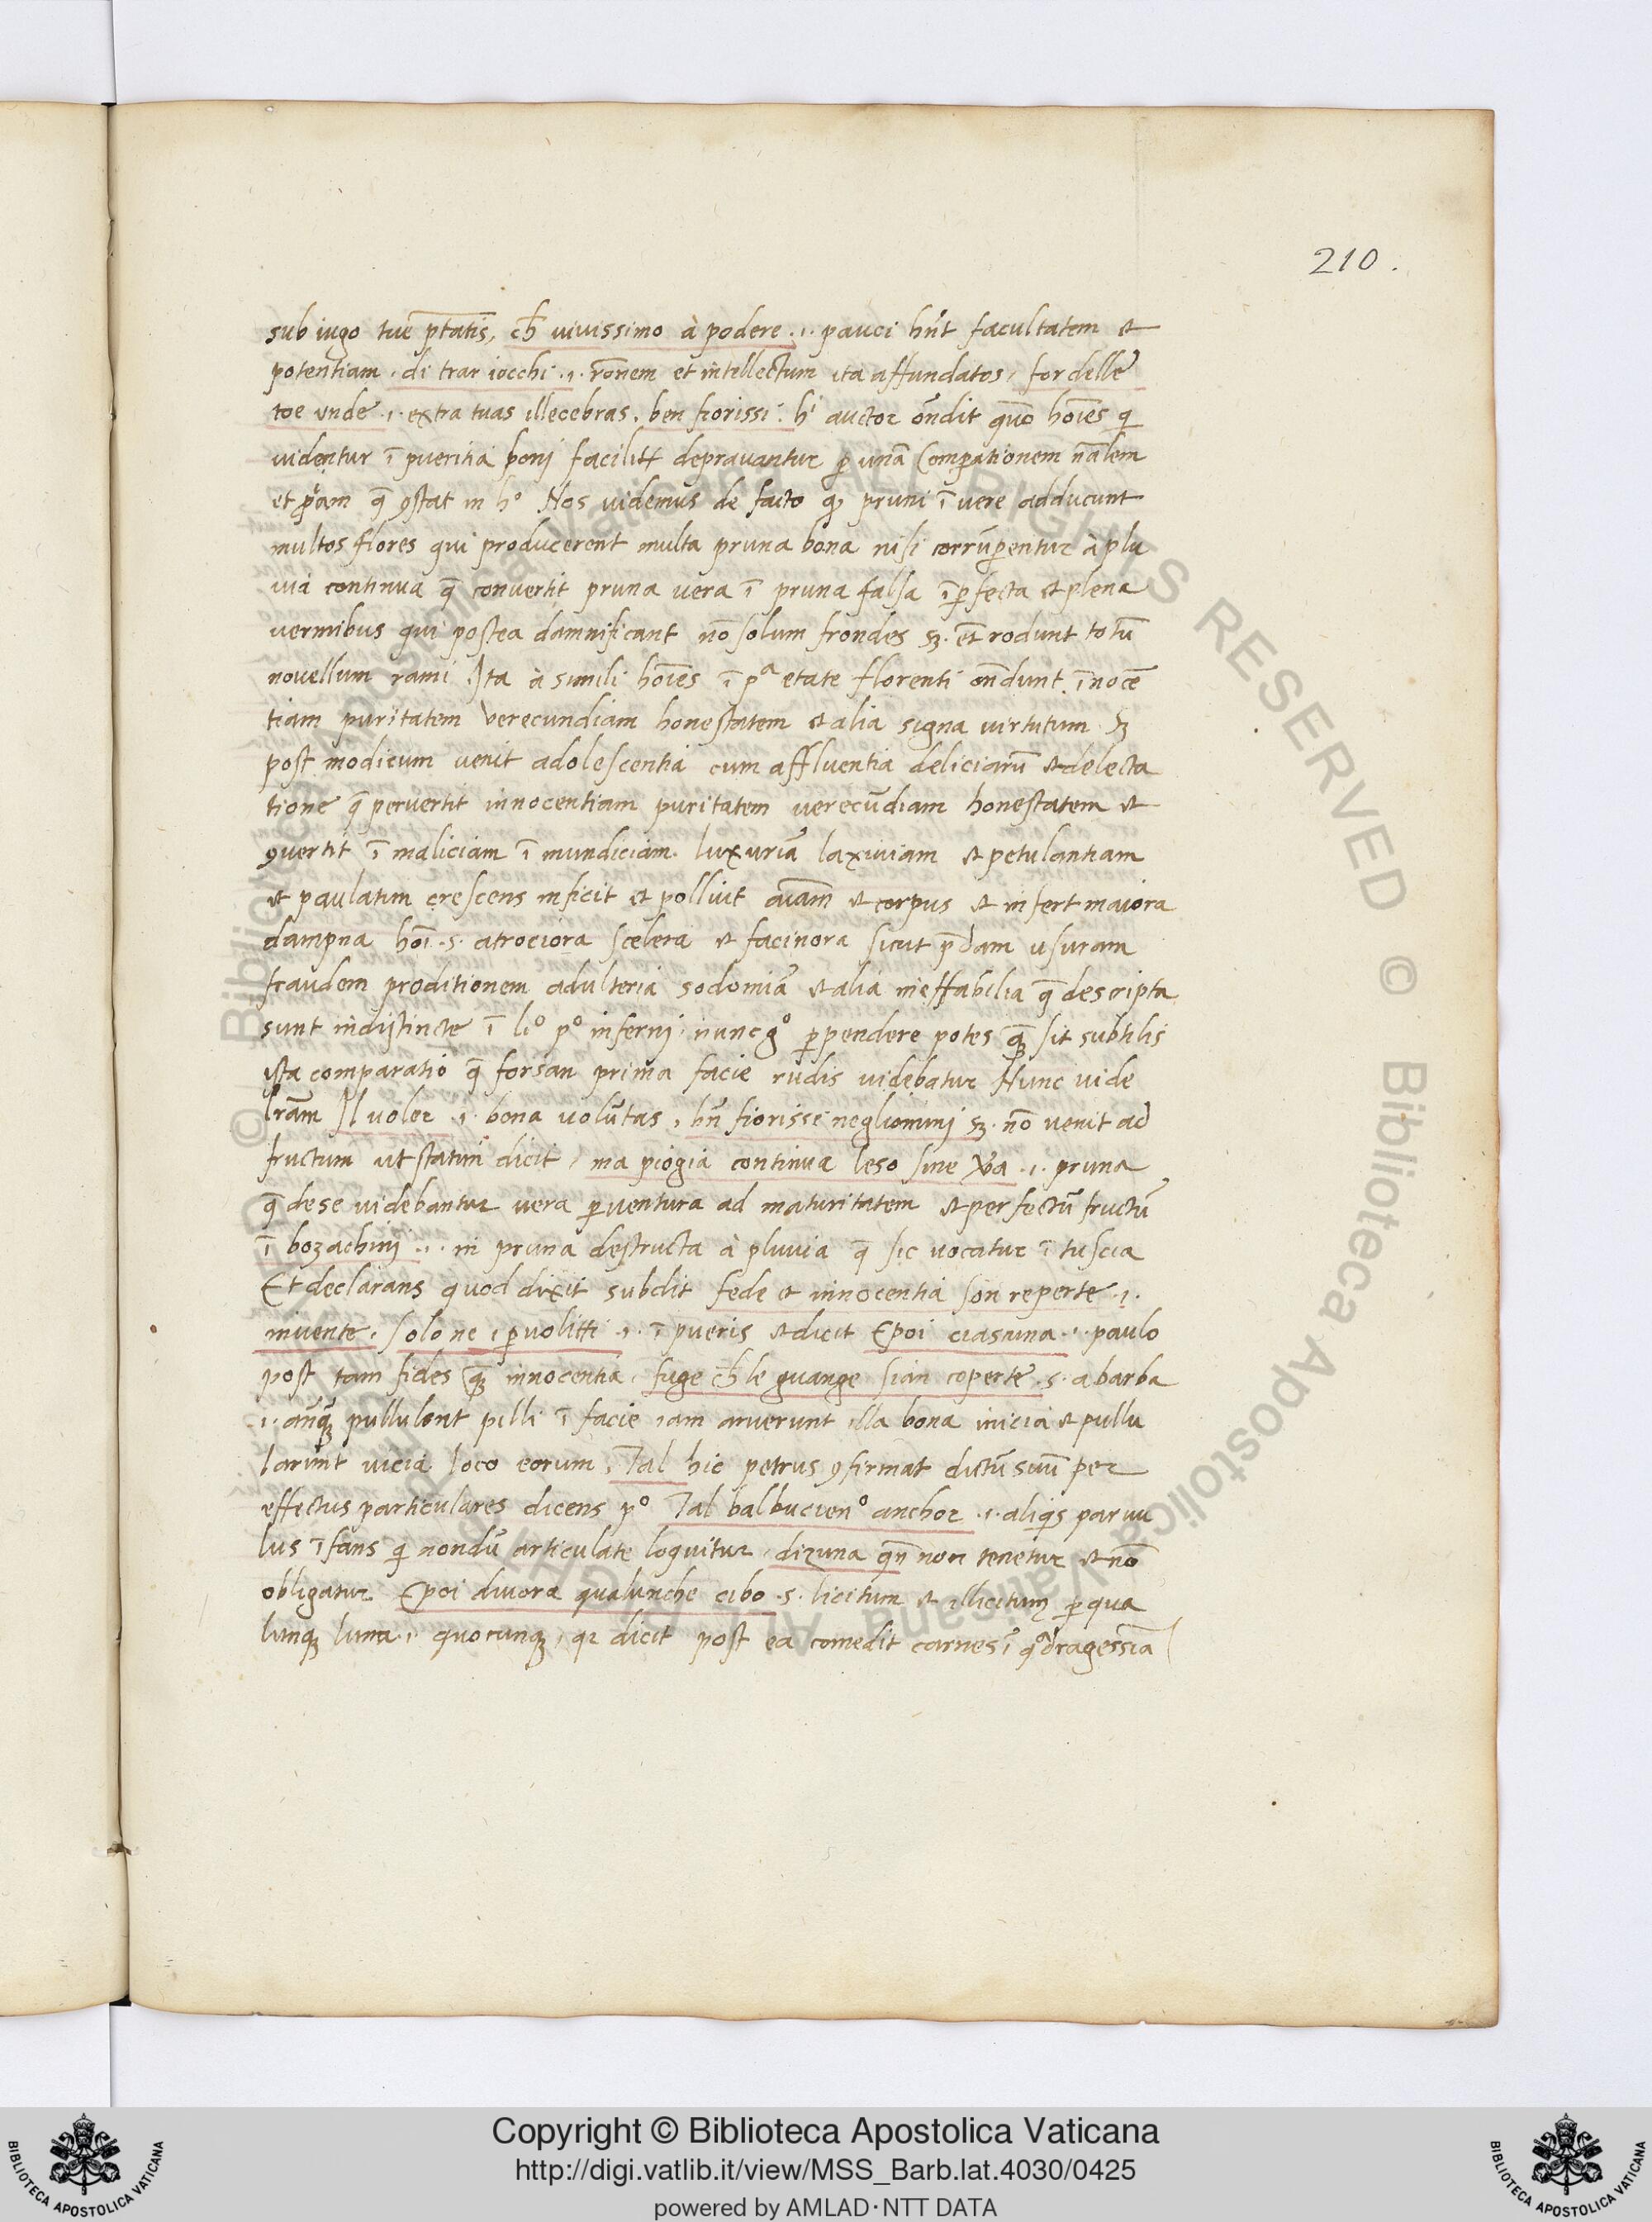 210.
sub iugo tue ptatis, ch̄ vivissimo à podere .ı. pauci hn̄t facultatem et
potentiam . di trar iocchi .ı. rōnem et intellectum ita affundatos, for delle
toe unde .ı. extra tuas illecebras . ben fiorissi . hⁱ auctor ōndit quō hoīes qi
videntur ī pueritia boni facilit̄ depravantur p unā Comperationem nālem
et ꝓpām q̄ ꝯstat in hº . Nos videmus de facto qꝫ pruni ī vere adducunt
multos flores qui producerent multa pruna bona nisi corrūperentur à plu
via continua q̄ convertit pruna vera ī pruna falsa īperfecta et plena
vermibus qui postea damnificant nō solum frondes sꝫ. et̄ rodunt totū
novellum rami . Ita à simili hoīes ī pª etate florenti ōndunt īnocē
tiam puritatem verecundiam honestatem et alia signa virtutum sꝫ
post modicum venit adolescentia cum affluentia deliciarū et delecta
tione q̄ pervertit innocentiam puritatem verecūdiam honestatem et
ꝯvertit ī maliciam ī mundiciam . luxuriā laxiviam et petulantiam
et paulatim crescens inficit et polluit aīam et corpus et infert maiora
dampna hoī .s. atrociora scelera et facinora sicut p̄dam usuram
fraudem proditionem adulteria sodomiā et alia ineffabilia q̄ descripta
sunt indistincte ī liº pº inferni . nunc gº perpendere potes qꝫ̄ sit subtilis
ista comparatio q̄ forsan prima facie rudis videbatur Nunc vide
lrām Il voler .ı. bona volūtas , bn̄ fiorisse neglionimi sꝫ . nō venit ad
fructum ut statim dicit , ma piogia continua leso sine v̄a .ı. pruna
q̄ de se videbantur vera perventura ad maturitatem et perfectū fructū
ī bozachini .ı. in pruna destructa à pluvia q̄ sic vocatur ī tuscia
Et declarans quod dixit subdit fede et innocentia son reperte .ı.
invente . solo ne , parvolitti .ı. ī pueris et dicit E poi ciasuna .ı. paulo
post tam fides qꝫ̄ innocentia . fuge ch̄ le guange sian coperte .s. a barba
.ı. an̄qꝫ̄ pullulent pilli ī facie iam aruerunt illa bona inicia et pullu
larunt vicia loco eorum , Tal hic petrus ꝯfirmat dictū suū per
effectus particulares dicens pº Tal balbucienº anchor .ı. aliqis parvu
lus īfans qi nondū articulate loquitur , dizuna qn̄ non tenetur et nō
obligatur E poi divora qualunche cibo .s. licitum et illicitum per qua
lunqꝫ luna .ı. quocunqꝫ , qz dicit post ea comedit carnes ī qᵃdragessiā
Copyright © Biblioteca Apostolica Vaticana
http://digi.vatlib.it/view/MSS_Barb.lat.4030/0425
powered by AMLAD·NTT DATA